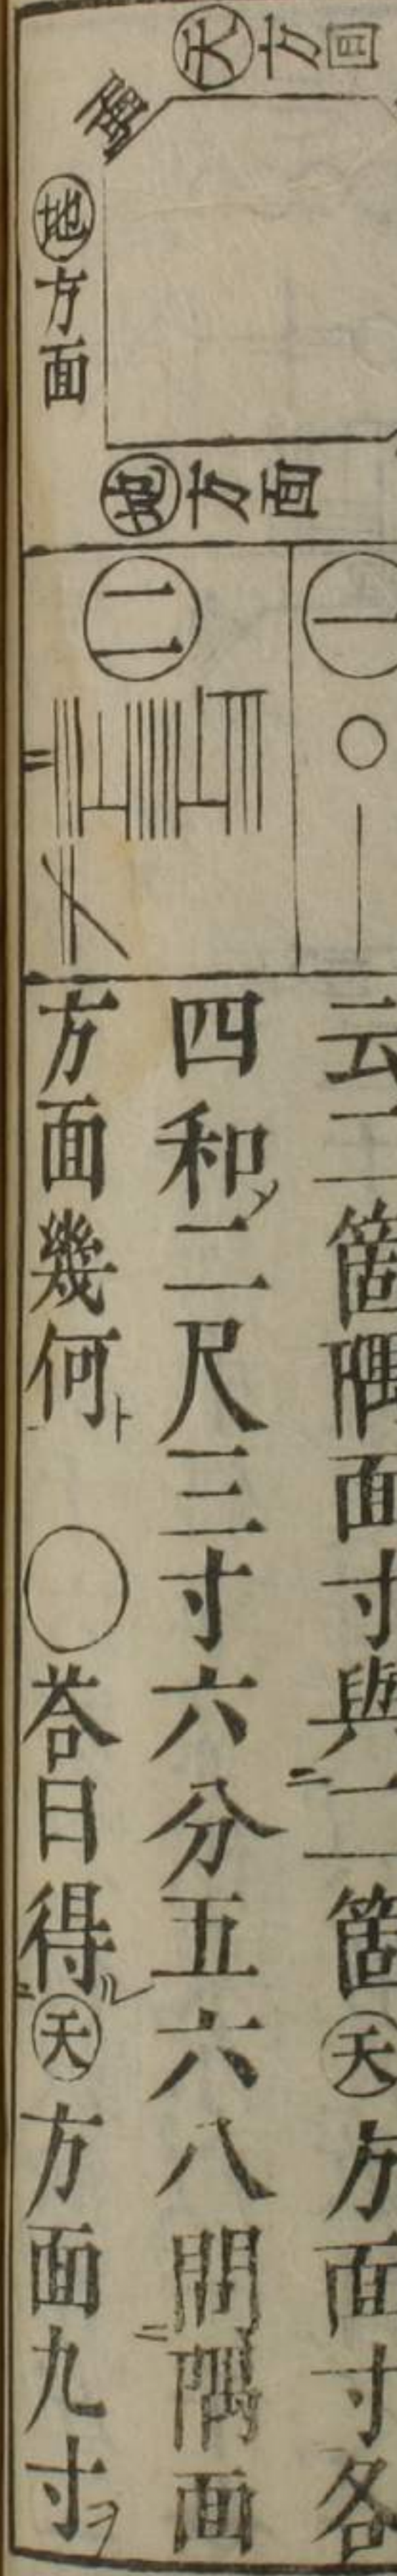 天方面
隅
地方面
地方面
一
二
云二箇隅面寸與二箇天方面寸各
四和シ二尺三寸六分五六八問隅面
方面幾何ト ○答曰得ル天方面九寸ヲ